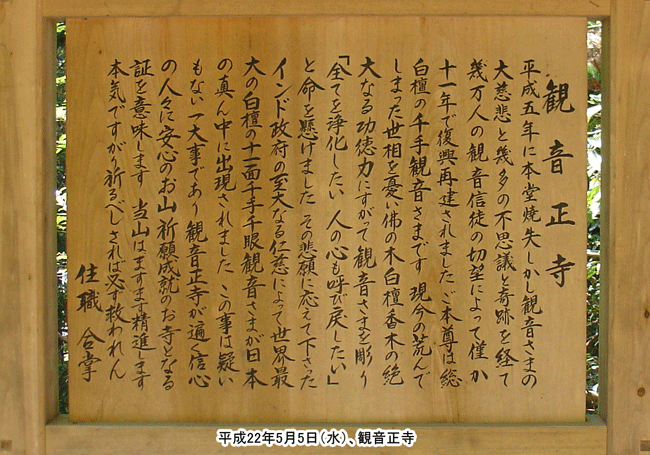 観音正寺
平成五年に本堂焼失しかし観音さまの
大慈悲と幾多の不思議と奇跡を経て
幾万人の観音信徒の切望によって僅か
十一年で復興再建されました、ご本尊は総
白檀の千手観音さまです 現今の荒んで
しまった世相を憂い佛の木白檀香木の絶
大なる功徳力にすがて観音さまを彫り
「全てを浄化したい 人の心も呼び戻したい」
と命を懸けました その悲願に応えて下さった
インド政府の至大なる仁慈によって世界最
大の白檀の十一面千手千眼観音さまが日本
の真ん中に出現されました この事は疑い
もない一大事であり観音正寺が遍く信心
の人々に安心のお山 祈願成就のお寺となる
証を意味します 当山はますます精進します
本気ですがり祈るべしされば必ず救われん
住職 合掌
平成22年5月5日(水)、観音正寺